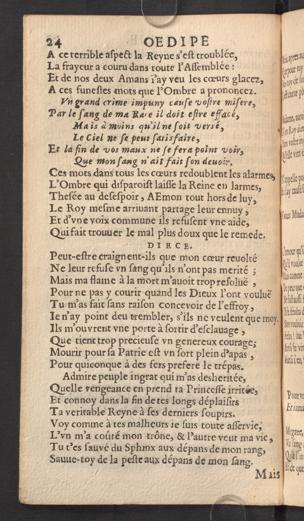 24 OEDIPE
A ce terrible aspect la Reyne s'est troublée,
La frayeur a couru dans toute l'Assemblée :
Et de nos deux Amans i'ay veu les cœurs glacez,
A ces funestes mots que l'Ombre a prononcez.
Vn grand crime impuny cause vostre misere,
Par le sang de ma Race il doit estre effacé,
Mais à moins qu'il ne soit versé,
Le Ciel ne se peut satisfaire,
Et la fin de vos maux ne se fera point voir,
Que mon sang n'ait fait son deuoir.
Ces mots dans tous les cœurs redoublent les alarmes,
L'Ombre qui disparoist laisse la Reine en larmes,
Thesée au desespoir, AEmon tout hors de luy,
Le Roy mesme arriuant partage leur ennuy,
Et d'vne voix commune ils refusent vne aide,
Qui fait trouuer le mal plus doux que le remede.
DIRCE.
Peut-estre craignent-ils que mon cœur reuolté
Ne leur refuse vn sang qu'ils n'ont pas merité ;
Mais ma flame à la mort m'auoit trop resoluë,
Pour ne pas y courir quand les Dieux l'ont vouluë
Tu m'as fait sans raison conceuoir de l'effroy,
Ie n'ay point deu trembler, s'ils ne veulent que moy.
Ils m'ouurent vne porte à sortir d'esclauage,
Que tient trop precieuse vn genereux courage;
Mourir pour sa Patrie est vn sort plein d'apas,
Pour quiconque à des fers prefere le trépas.
Admire peuple ingrat qui m'as desheritée,
Quelle vengeance en prend ta Princesse irritée,
Et connoy dans la fin de tes longs déplaisirs
Ta veritable Reyne à ses derniers soupirs.
Voy comme à tes malheurs ie suis toute asseruie,
L'vn m'a cousté mon trône, & l'autre veut ma vie,
Tu t'es sauué du Sphinx aux dépans de mon rang,
Sauue-toy de la peste aux dépans de mon sang.
Mais